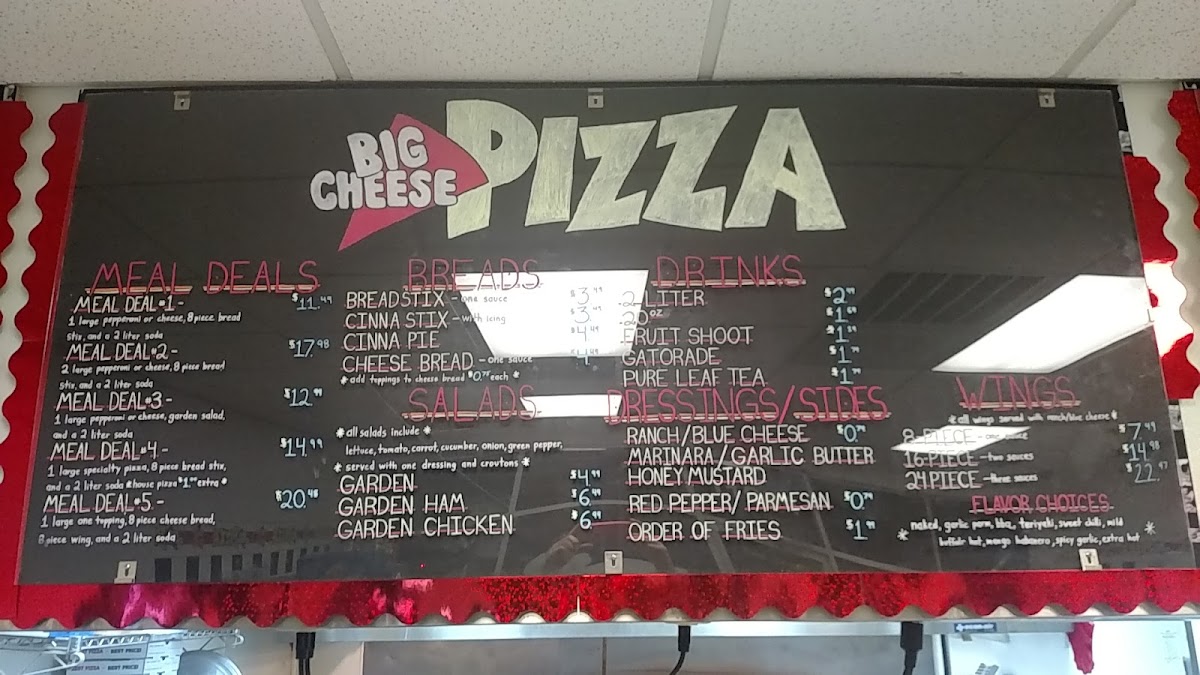 BIG
CHEESE
PIZZA
MEAL DEALS
MEAL DEAL #1 - $11.49
1 large pepperoni or cheese, 8 piece bread
stix, and a 2 liter soda
MEAL DEAL #2 - $17.98
2 large pepperoni or cheese, 8 piece bread
stix, and a 2 liter soda
MEAL DEAL #3 - $12.99
1 large pepperoni or cheese, garden salad,
and a 2 liter soda
MEAL DEAL #4 - $14.99
1 large specialty pizza, 8 piece bread stix,
and a 2 liter soda *house pizza $1.00 extra*
MEAL DEAL #5 - $20.48
1 large one topping, 8 piece cheese bread,
8 piece wing, and a 2 liter soda
BREADS
BREADSTIX - one sauce $3.99
CINNA STIX - with icing $3.49
CINNA PIE $4.49
CHEESE BREAD - one sauce $4.49
*add toppings to cheese bread $0.75 each*
SALADS
*all salads include*
lettuce, tomato, carrot, cucumber, onion, green pepper,
*served with one dressing and croutons*
GARDEN $4.99
GARDEN HAM $6.99
GARDEN CHICKEN $6.99
DRINKS
2 LITER $2.99
20 oz $1.69
FRUIT SHOOT $1.59
GATORADE $1.79
PURE LEAF TEA $1.79
DRESSINGS/SIDES
RANCH/BLUE CHEESE $0.74
MARINARA/GARLIC BUTTER
HONEY MUSTARD
RED PEPPER/PARMESAN $0.74
ORDER OF FRIES $1.99
WINGS
*all wings served with ranch/blue cheese*
8-PIECE - one sauce $7.49
16 PIECE - two sauces $14.98
24 PIECE - three sauces $22.47
FLAVOR CHOICES
*naked, garlic parm, bbq, teriyaki, sweet chili, mild
buffalo hot, mango habanero, spicy garlic, extra hot*
PIZZA - BEST PRICE!